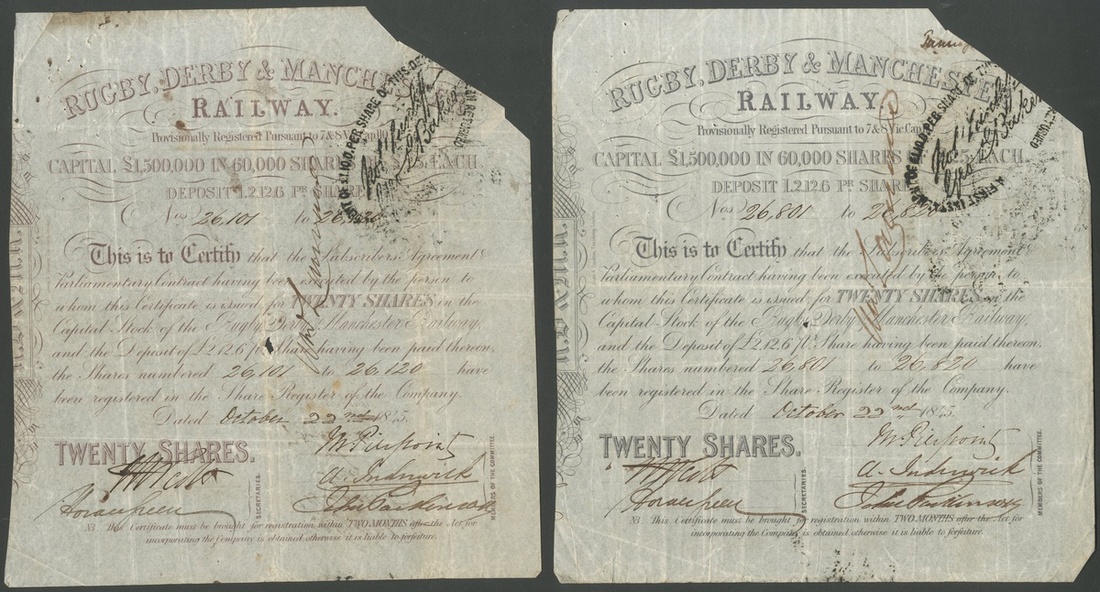 RUGBY, DERBY & MANCHES
RAILWAY.
Provisionally Registered Pursuant to 7 & 8 Vic Cap. 110
CAPITAL £1,500,000 IN 60,000 SHARES EACH.
DEPOSIT £2.12.6 PR SHARE
Nos 26,101 to
This is to Certify that the Subscribers Agreement &
Parliamentary Contract having been executed by the person to
whom this Certificate is issued for TWENTY SHARES in the
Capital Stock of the Rugby Derby & Manchester Railway,
and the Deposit of £2.12.6 Pr Share having been paid thereon,
the Shares numbered 26,101 to 26,120 have
been registered in the Share Register of the Company.
Dated October 22nd 1845
TWENTY SHARES.
SECRETARIES.
MEMBERS OF THE COMMITTEE.
NB This Certificate must be brought for registration within TWO MONTHS after the Act for
incorporating the Company is obtained otherwise it is liable to forfeiture.
PER SHARE OF THIS
RETURNED
RUGBY, DERBY & MANCHESTER
RAILWAY.
Provisionally Registered Pursuant to 7 & 8 Vic Cap
CAPITAL £1,500,000 IN 60,000 SHARES EACH.
DEPOSIT £2.12.6 PR SHARE
Nos 26,801 to 26,820
This is to Certify that the Subscribers Agreement &
Parliamentary Contract having been executed by the person to
whom this Certificate is issued for TWENTY SHARES in the
Capital Stock of the Rugby Derby & Manchester Railway,
and the Deposit of £2.12.6 Pr Share having been paid thereon,
the Shares numbered 26,801 to 26,820 have
been registered in the Share Register of the Company.
Dated October 22nd 1845
TWENTY SHARES.
SECRETARIES.
MEMBERS OF THE COMMITTEE.
NB This Certificate must be brought for registration within TWO MONTHS after the Act for
incorporating the Company is obtained otherwise it is liable to forfeiture.
A FIRST
OF £1.10.0. PER SHARE OF
RETURNED